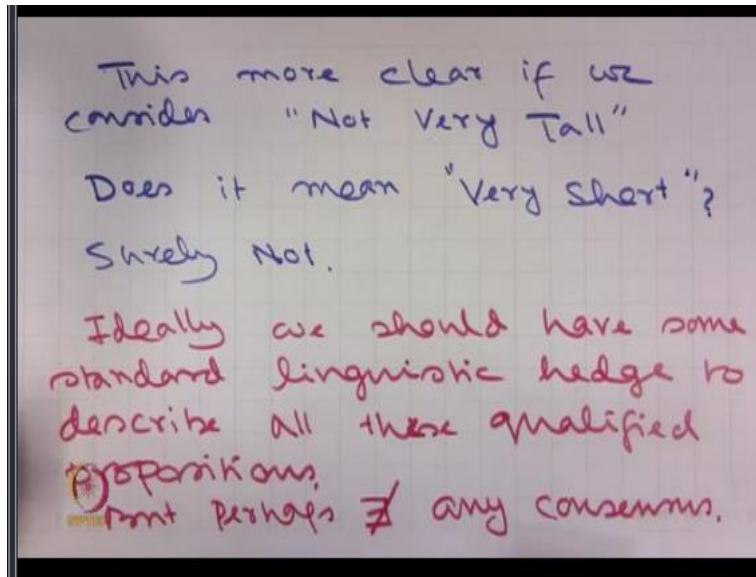 This more clear if we
consider "Not Very Tall"
Does it mean "Very Short"?
Surely Not.
Ideally we should have some
standard linguistic hedge to
describe all these qualified
propositions.
But perhaps ∄ any consensus.